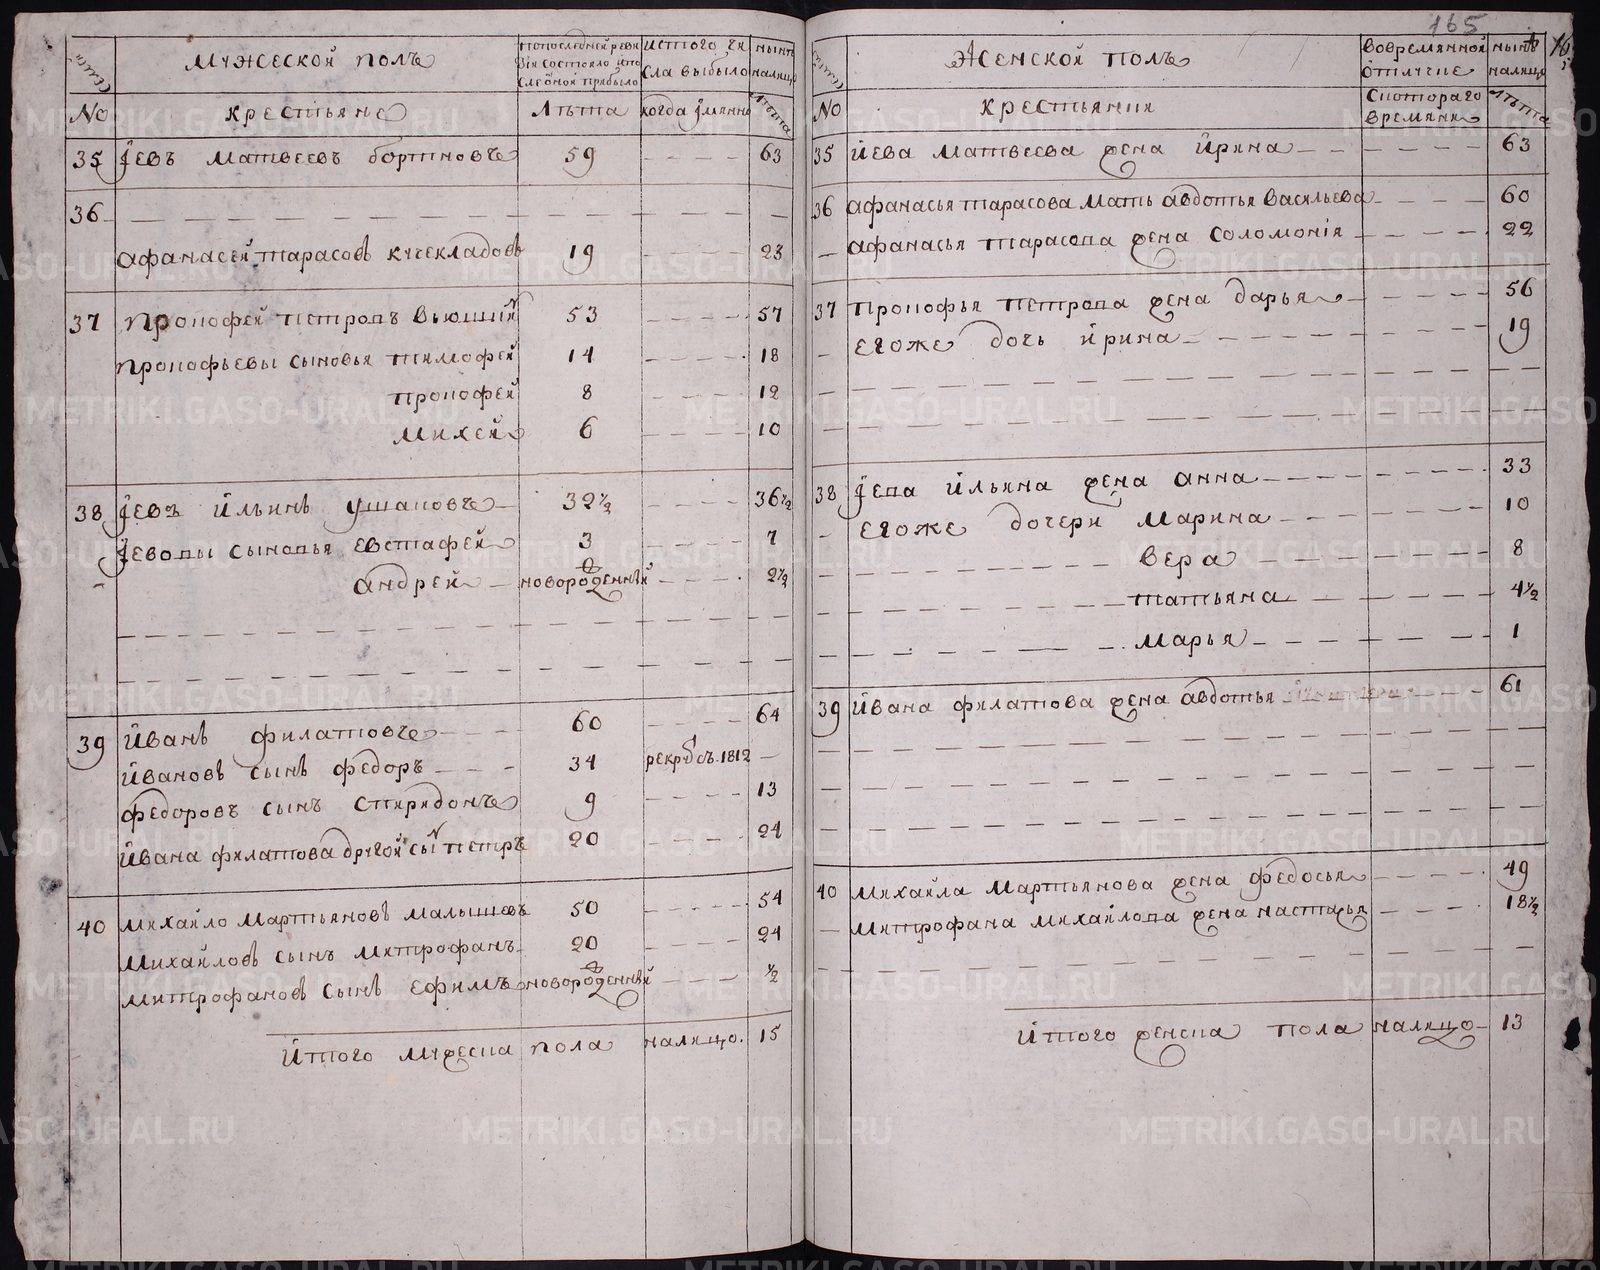 165
Мужеской полъ
По последней ревизіи состояло и после оной прибыло
Ис того числа выбыло
Ныне налицо
№
крестьяне
Лѣта
когда имянно
Лѣта
35 Iевъ Матвеевъ бортновъ 59 63
36
Афанасей Тарасовъ Кучекладовъ 19 23
37 Прокофей Петровъ Вьюшин 53 57
Прокофьевы сыновья Тимофей 14 18
Прокофей 8 12
Михей 6 10
38 Iевъ Ильинъ Ушаковъ 32½ 36½
Iевовы сыновья Евстафей 3 7
Андрей новорожденный 2½
39 Иванъ Филатовъ 60 64
Ивановъ сынъ Федоръ 34 рекрутъ 1812
Федоровъ сынъ Спиридонъ 9 13
Ивана Филатова другой сын Петръ 20 24
40 Михайло Мартьяновъ Малышевъ 50 54
Михайловъ сынъ Митрофанъ 20 24
Митрофановъ сынъ Ефимъ новорожденный ½
Итого мужеска пола налицо. 15
Женской полъ
Во временной отлучке
Ныне налицо
№
крестьянки
С котораго времяни
Лѣта
35 Иева Матвеева жена Ирина 63
36 Афанасья Тарасова мать Авдотья Васильева 60
Афанасья Тарасова жена Соломонія 22
37 Прокофья Петрова жена Дарья 56
Егоже дочь Ирина 19
38 Iева Ильина жена Анна 33
Егоже дочери Марина 10
Вера 8
Татьяна 4½
Марья 1
39 Ивана Филатова жена Авдотья 61
40 Михайла Мартьянова жена Федосья 49
Митрофана Михайлова жена Настасья 18½
Итого женска пола налицо 13
METRIKI.GASO-URAL.RU